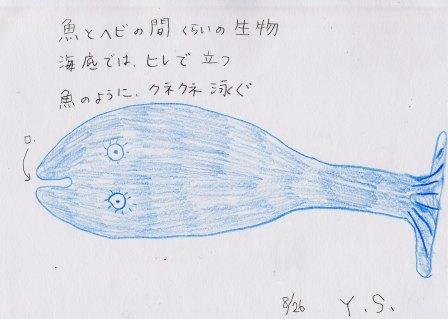 魚とヘビの間くらいの生物
海底では、ヒレで立つ
魚のように、クネクネ泳ぐ
口
8/26 Y.S.